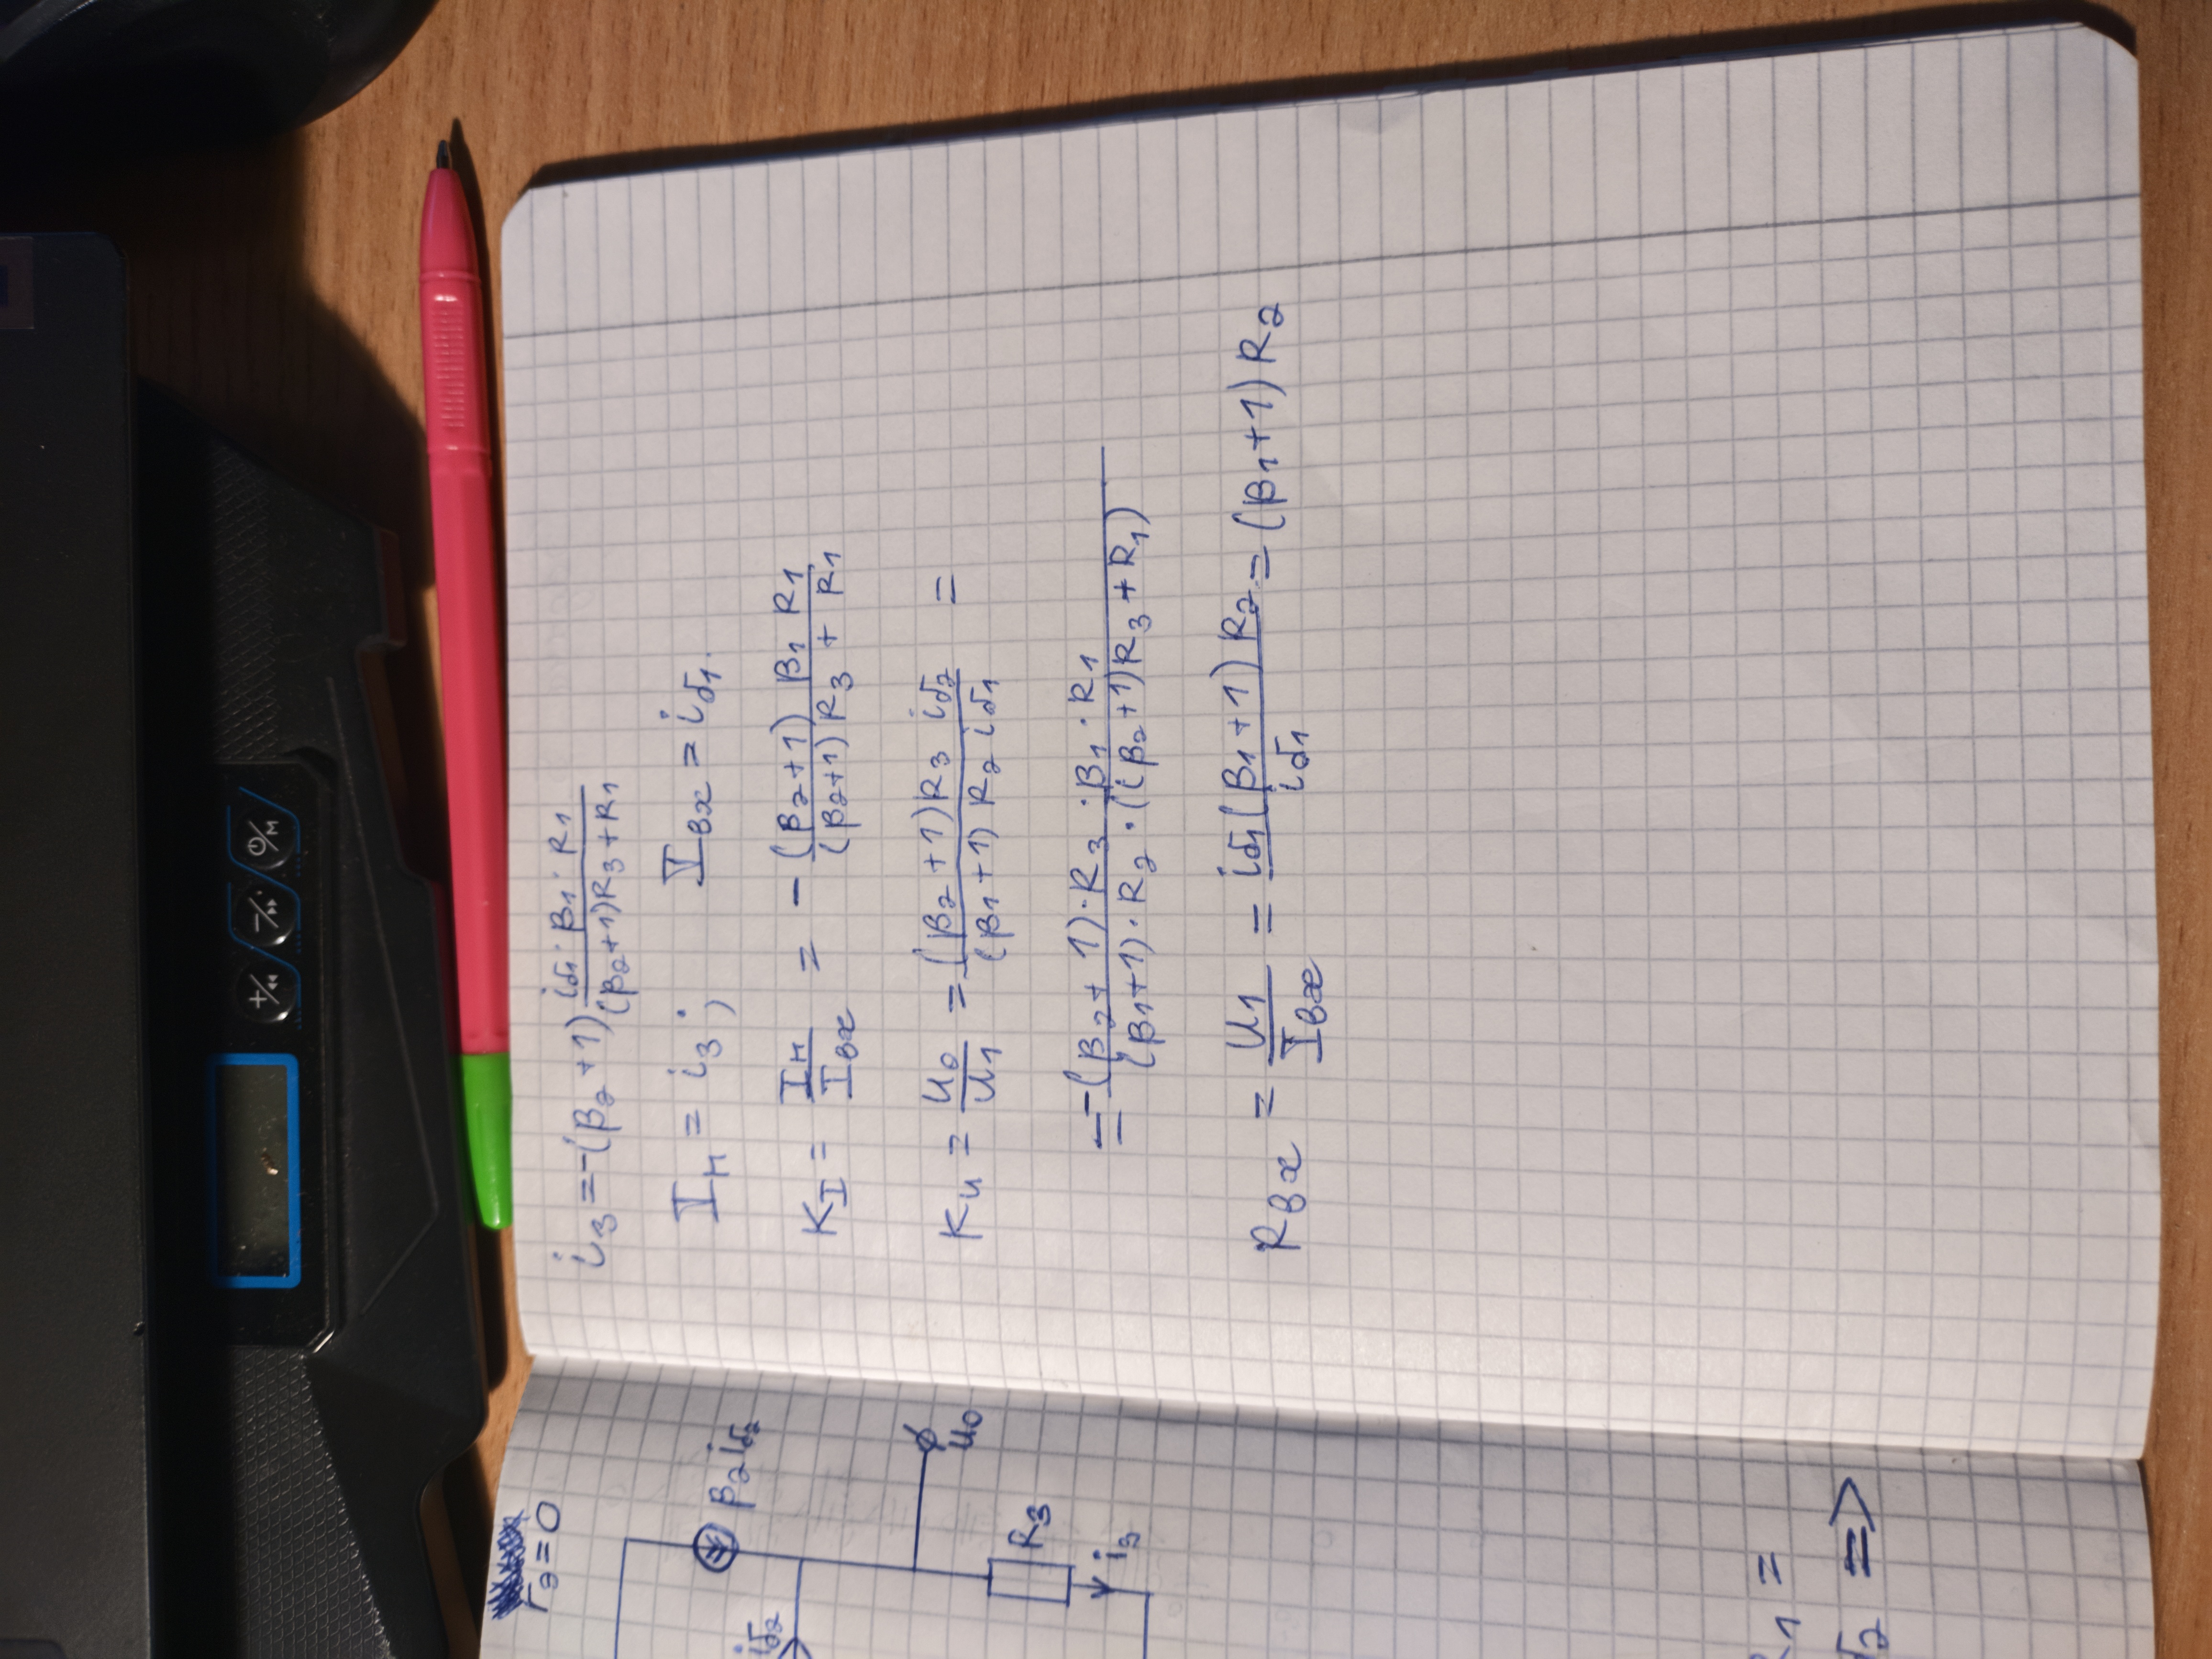 r_э = 0
β₂ i_б₂
i_б₂
u₀
R₃
i₃
R₁ =
б₂ =>
i₃ = -(β₂+1) (i_б₁ · β₁ · R₁)/((β₂+1)R₃ + R₁)
I_н = i₃ ; I_вх = i_б₁.
K_I = I_н/I_вх = - ((β₂+1) β₁ R₁)/((β₂+1) R₃ + R₁)
K_u = u₀/u₁ = ((β₂+1)R₃ i_б₂)/((β₁+1) R₂ i_б₁) =
= (-(β₂+1)·R₃·β₁·R₁)/((β₁+1)·R₂·((β₂+1)R₃+R₁))
R_вх = u₁/I_вх = (i_б₁(β₁+1) R₂)/i_б₁ = (β₁+1) R₂